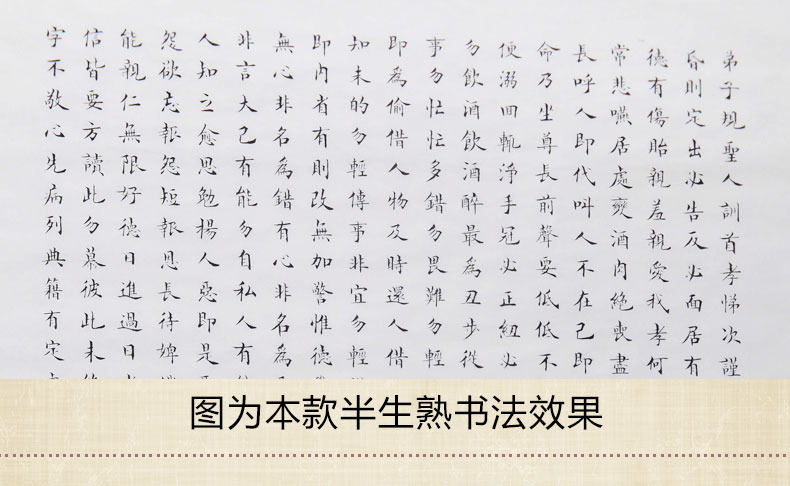 弟子規聖人訓首孝悌次謹
昏則定出必告反必面居有
德有傷胎親羞親愛我孝何
常悲嚥居處變酒肉絕喪盡
長呼人即代叫人不在己即
命乃坐尊長前聲要低低不
便溺回輒淨手冠必正紐必
勿飲酒飲酒醉最為丑步從
事勿忙忙多錯勿畏難勿輕
即為偷借人物及時還人借
知未的勿輕傳事非宜勿輕
即內省有則改無加警惟德
無心非名為錯有心非名為
非言大己有能勿自私人有
人知之愈思勉揚人惡即是
怨欲忘報怨短報恩長待婢
能親仁無限好德日進過日
信皆要方讀此勿慕彼此未
字不敬心先病列典籍有定
图为本款半生熟书法效果